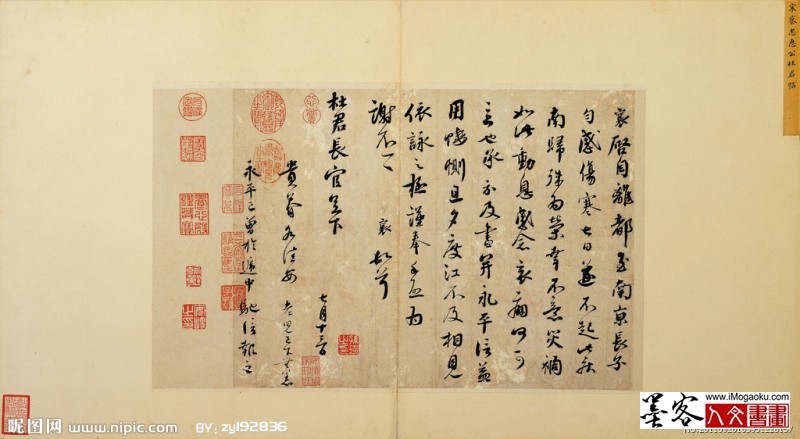 宋蔡忠惠公杜君帖
襄啓自離都至南京長子
匀感傷寒七日遂不起此疾
南歸殊為榮幸不意災禍
如此動息感念哀痛何可
言也承示及書并永平信益
用悽惻旦夕度江不及相見
依詠之極謹奉手啓為
謝不一一 襄頓首
杜君長官足下
七月十三日
貴眷各佳安 老兒已下無恙
永平已曾於遞中馳信報之
昵图网 www.nipic.com BY: zyl92836
墨客 www.iMogaoku.com
人文書畫